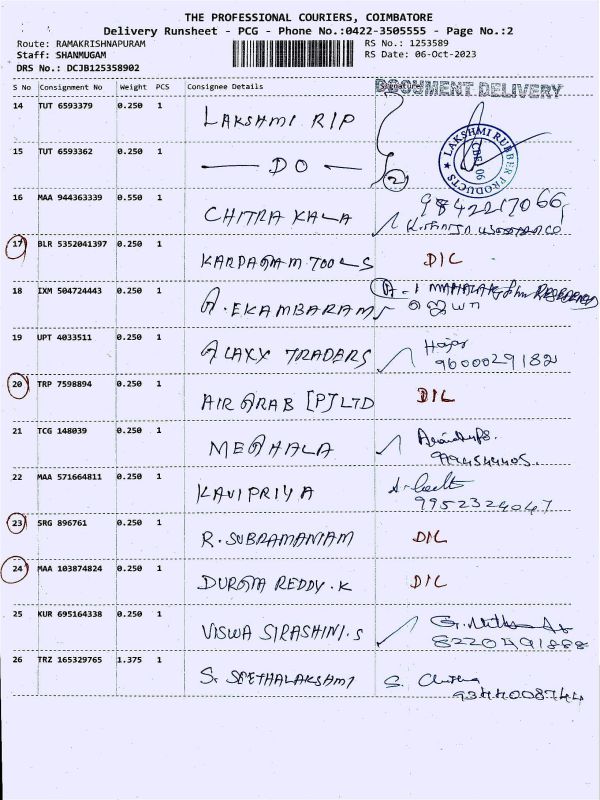 THE PROFESSIONAL COURIERS, COIMBATORE
Delivery Runsheet - PCG - Phone No.:0422-3505555 - Page No.:2
Route: RAMAKRISHNAPURAM RS No.: 1253589
Staff: SHANMUGAM RS Date: 06-Oct-2023
DRS No.: DCJB125358902
S No Consignment No Weight PCS Consignee Details Signature DOCUMENT DELIVERY
14 TUT 6593379 0.250 1 LAKSHMI RIP
LAKSHMI RUBBER PRODUCTS CBE 06
15 TUT 6593362 0.250 1 — DO — 2
16 MAA 944363339 0.550 1 CHITRA KALA 9842217066
17 BLR 5352041397 0.250 1 KARPAGAM TOOLS DIL
18 IXM 504724443 0.250 1 A. EKAMBARAM
19 UPT 4033511 0.250 1 ALAXY TRADERS 9600029182
20 TRP 7598894 0.250 1 AIR ARAB [P] LTD DIL
21 TCG 148039 0.250 1 MEGHALA 9994544405.
22 MAA 571664811 0.250 1 KAVIPRIYA 9952324047
23 SRG 896761 0.250 1 R. SUBRAMANIAM DIL
24 MAA 103874824 0.250 1 DURGA REDDY. K DIL
25 KUR 695164338 0.250 1 VISWA SIRASHINI. S 8220491888
26 TRZ 165329765 1.375 1 S. SEETHALAKSHMI S. Chitra 9344008744